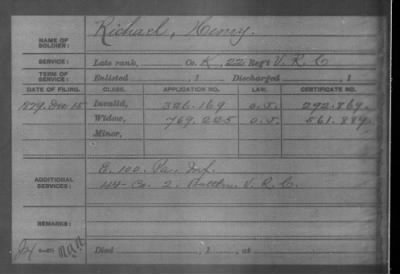 NAME OF SOLDIER: Richael, Henry.
SERVICE: Late rank, Co. K, 22 Reg't V. R. C
TERM OF SERVICE: Enlisted , 1 Discharged , 1
DATE OF FILING. CLASS. APPLICATION NO. LAW. CERTIFICATE NO.
1879, Dec 15 Invalid, 326.169 292.869.
Widow, 769.225 561.889.
Minor,
ADDITIONAL SERVICES: E. 100. Pa. Inf.
44- Co. 2. Battln. V. R. C.
REMARKS:
Died , 1 , at